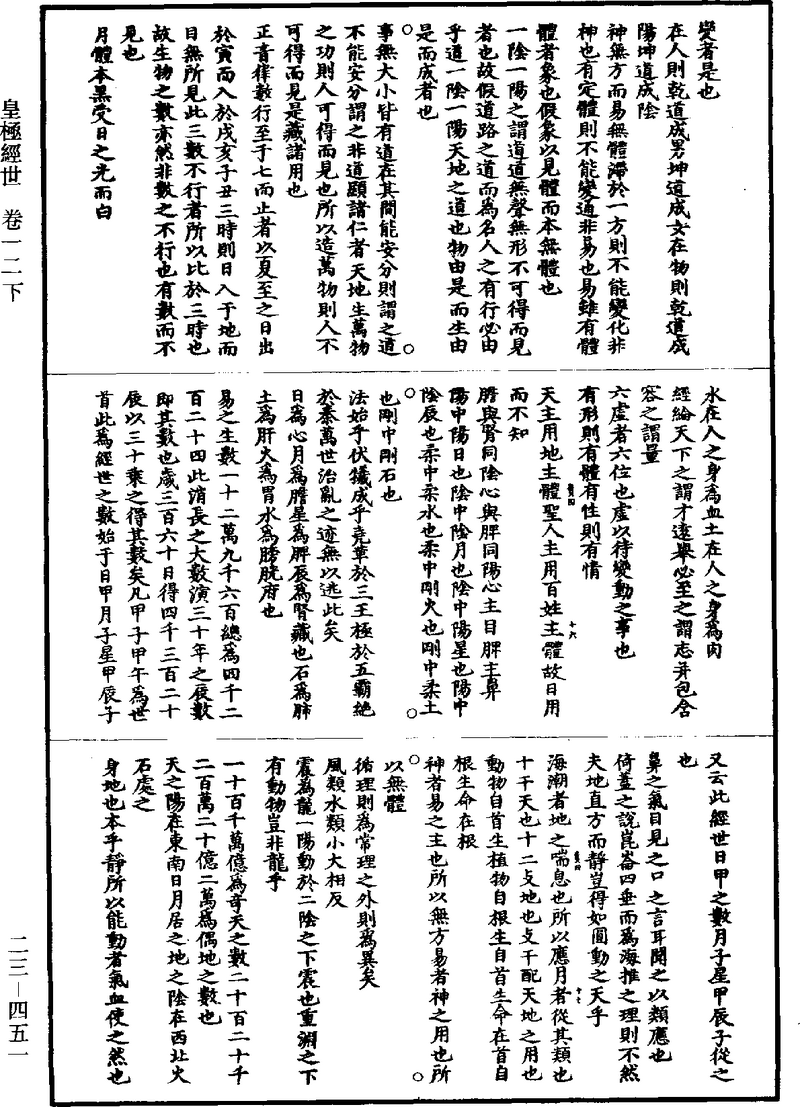 皇極經世　卷一二下
變者是也
在人則乾道成男坤道成女在物則乾道成
陽坤道成陰
神無方而易無體滯於一方則不能變化非
神也有定體則不能變通非易也易雖有體
體者象也假象以見體而本無體也
一陰一陽之謂道道無聲無形不可得而見
者也故假道路之道而為名人之有行必由
乎道一陰一陽天地之道也物由是而生由
是而成者也
事無大小皆有道在其間能安分則謂之道
不能安分謂之非道顯諸仁者天地生萬物
之功則人可得而見也所以造萬物則人不
可得而見是藏諸用也
正音律數行至于七而止者以夏至之日出
於寅而入於戌亥子丑三時則日入于地而
目無所見此三數不行者所以比於三時也
故生物之數亦然非數之不行也有數而不
見也
月體本黑受日之光而白
水在人之身為血土在人之身為肉
經綸天下之謂才遠舉必至之謂志并包含
容之謂量
六虛者六位也虛以待變動之事也
有形則有體有性則有情
天主用地主體聖人主用百姓主體故日用
而不知
膽與腎同陰心與脾同陽心主目脾主鼻
陽中陽日也陰中陰月也陰中陽星也陽中
陰辰也柔中柔水也柔中剛火也剛中柔土
也剛中剛石也
法始乎伏犧成乎堯革於三王極於五霸絕
於秦萬世治亂之迹無以逃此矣
日為心月為膽星為脾辰為腎藏也石為肺
土為肝火為胃水為膀胱府也
易之生數一十二萬九千六百總為四千三
百二十四此消長之大數演三十年之辰數
即其數也歲三百六十日得四千三百二十
辰以三十乘之得其數矣凡甲子甲午為世
首此為經世之數始于日甲月子星甲辰子
又云此經世日甲之數月子星甲辰子從之
也
鼻之氣目見之口之言耳聞之以類應也
倚蓋之說崑崙四垂而為海推之理則不然
夫地直方而靜豈得如圓動之天乎
海潮者地之喘息也所以應月者從其類也
十干天也十二支地也支干配天地之用也
動物自首生植物自根生自首生命在首自
根生命在根
神者易之主也所以無方易者神之用也所
以無體
循理則為常理之外則為異矣
風類水類小大相反
震為龍一陽動於二陰之下震也重淵之下
有動物豈非龍乎
一十百千萬億為奇天之數二十百二十千
二百萬二十億二萬為偶地之數也
天之陽在東南日月居之地之陰在西北火
石處之
身地也本乎靜所以能動者氣血使之然也
二三—四五一